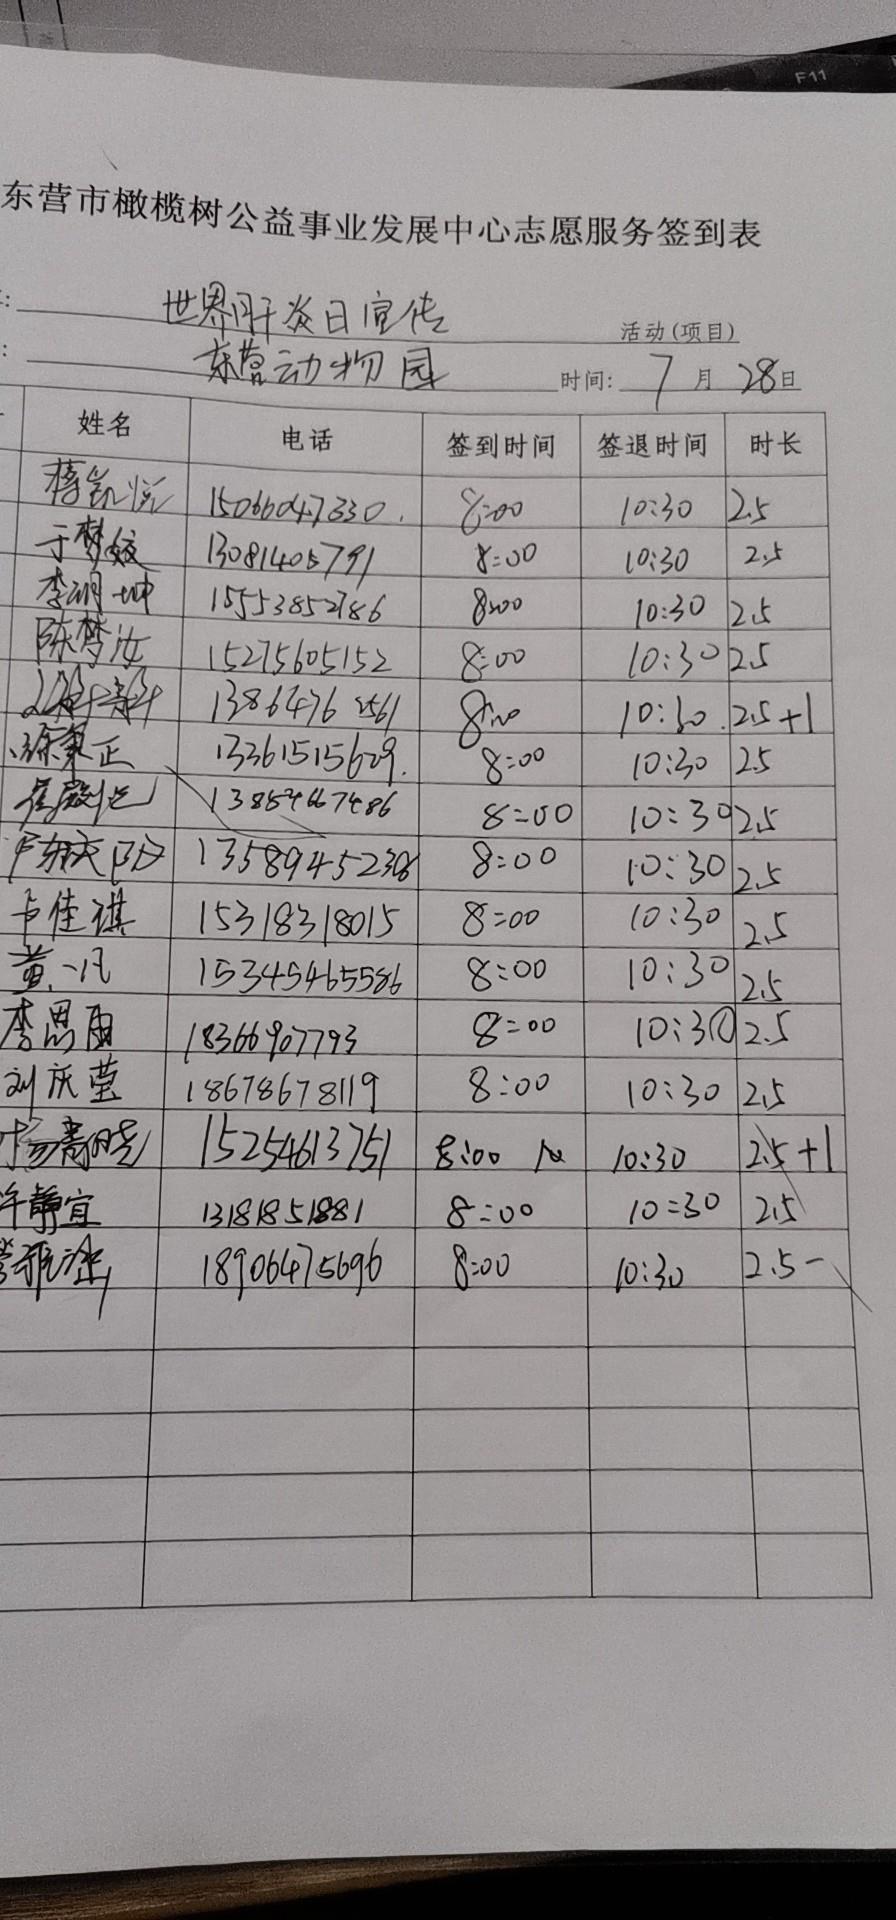 F11
东营市橄榄树公益事业发展中心志愿服务签到表
: 世界肝炎日宣传 活动(项目)
: 东营动物园 时间: 7月28日
姓名 电话 签到时间 签退时间 时长
15066047330. 8:00 10:30 2.5
于梦姣 13081405791 8:00 10:30 2.5
李明坤 15553852786 8:00 10:30 2.5
陈梦汝 15275605152 8:00 10:30 2.5
13864762561 8:00 10:30. 2.5+1
徐秉正 13361515609. 8:00 10:30 2.5
13854667486 8:00 10:30 2.5
13589452308 8:00 10:30 2.5
卢佳琪 15318318015 8:00 10:30 2.5
黄一凡 15345465586 8:00 10:30 2.5
李思雨 18366907793 8:00 10:30 2.5
刘庆莹 18678678119 8:00 10:30 2.5
15254613751 8:00 10:30 2.5+1
许静宜 13181851881 8:00 10:30 2.5
18906475696 8:00 10:30 2.5-